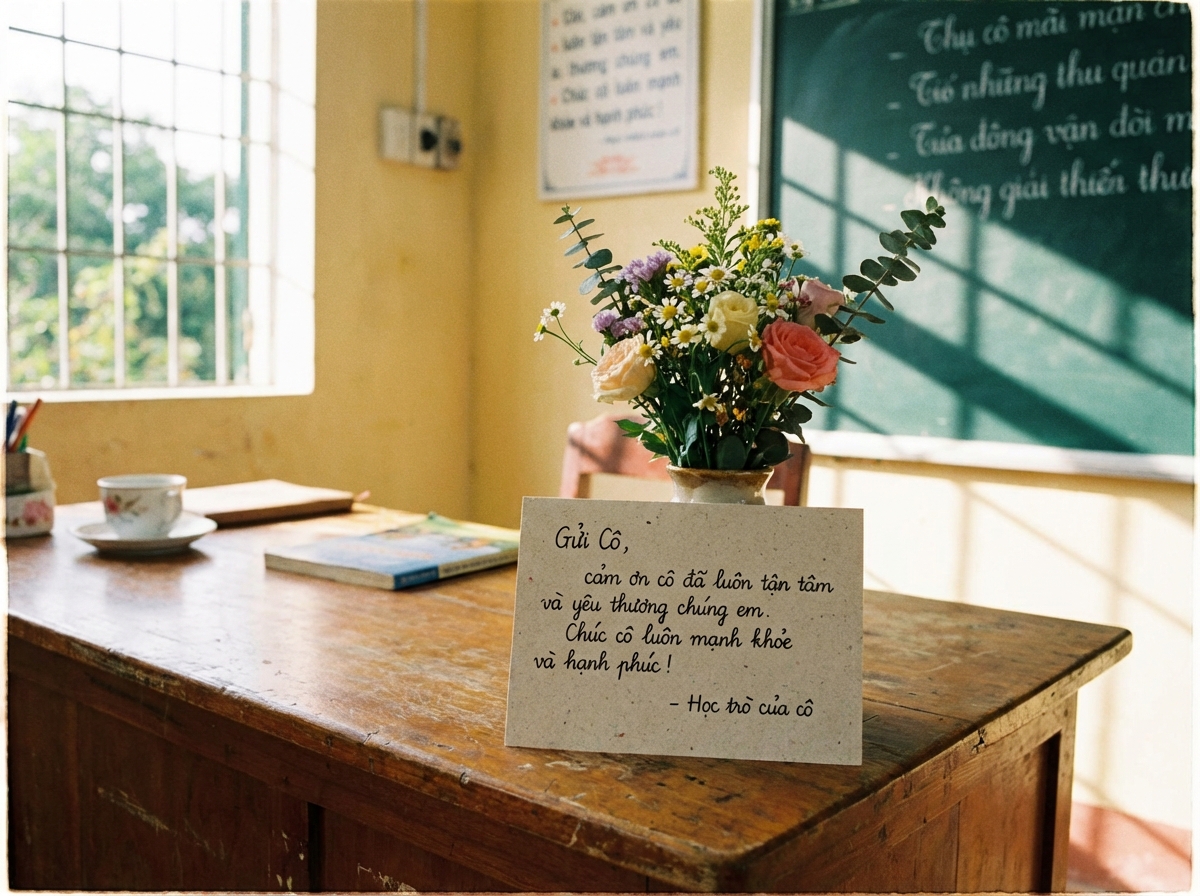 cảm ơn cô
luôn tận tâm và yêu
thương chúng em.
Chúc cô luôn mạnh
khỏe và hạnh phúc !
Thụ cô mãi mạn
- Gió những thu quán
- Tủa đông vận dòi m
Không giải thiến thư
Gửi Cô,
cảm ơn cô đã luôn tận tâm
và yêu thương chúng em.
Chúc cô luôn mạnh khỏe
và hạnh phúc !
- Học trò của cô